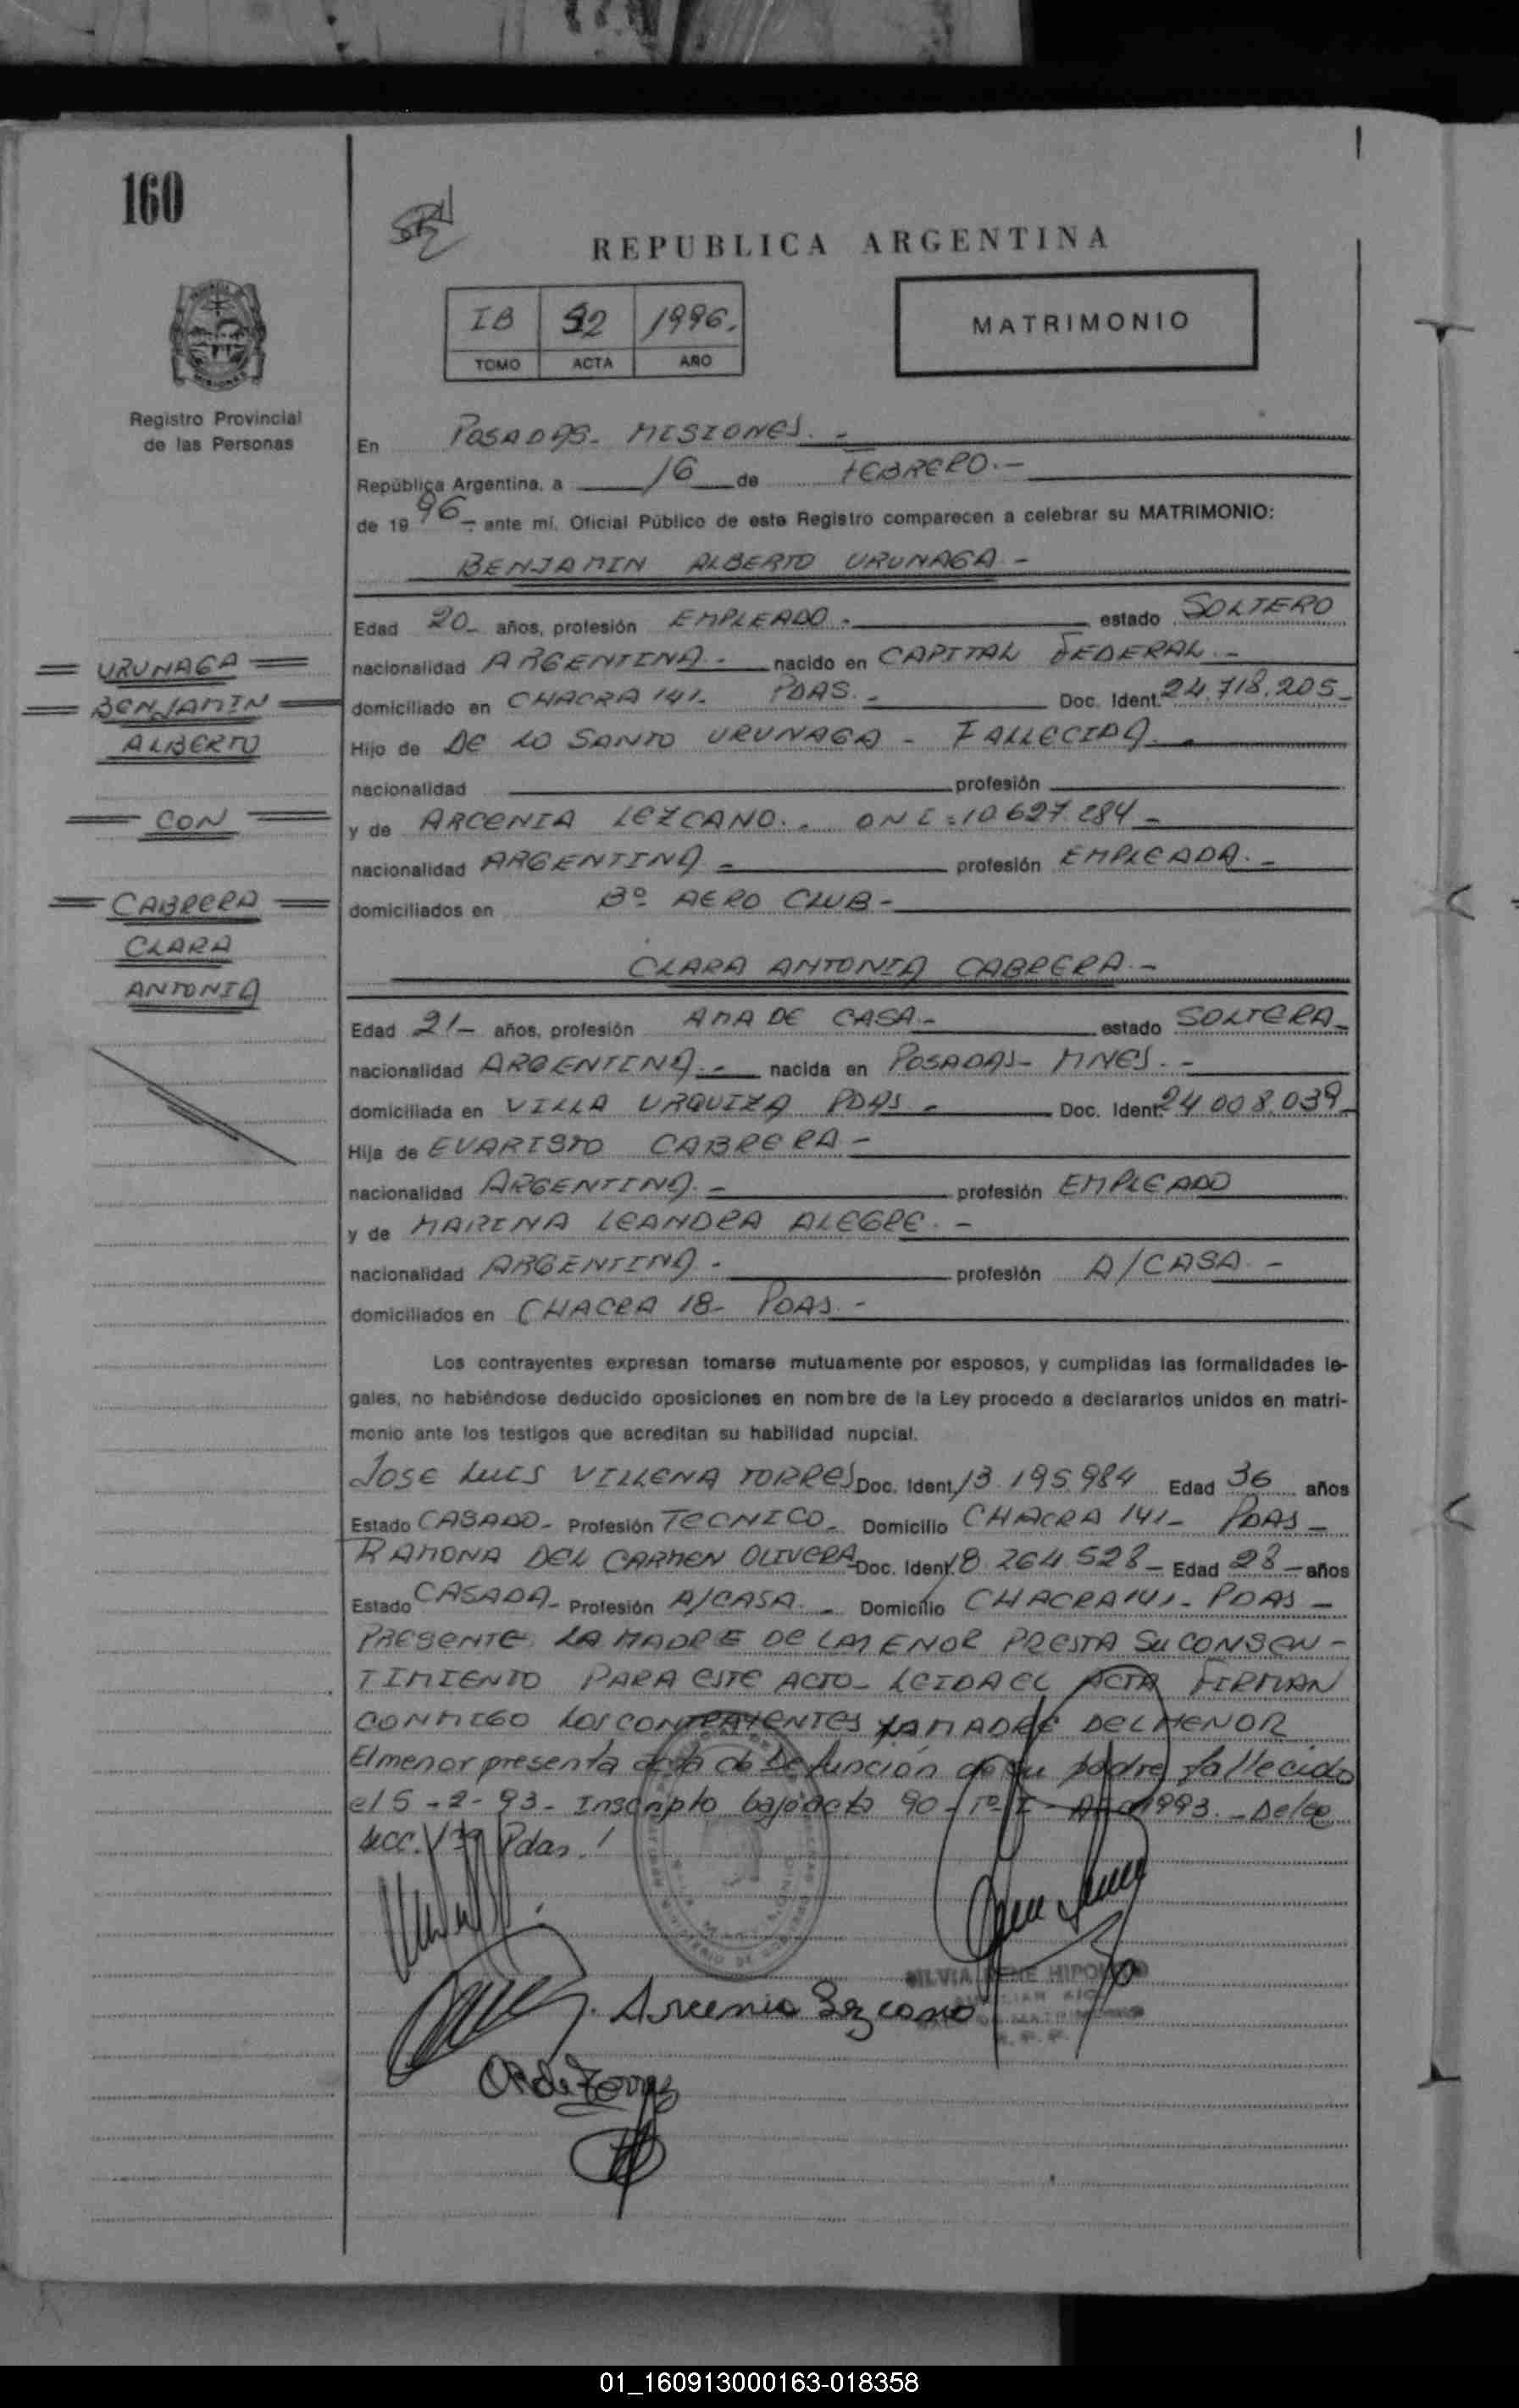 160
REPUBLICA ARGENTINA
IB 92 1996.
TOMO ACTA AÑO
MATRIMONIO
Registro Provincial
de las Personas
En POSADAS- MISIONES.-
República Argentina, a 16 de FEBRERO.-
de 1996- ante mí, Oficial Público de este Registro comparecen a celebrar su MATRIMONIO:
BENJAMIN ALBERTO URUNAGA-
Edad 20- años, profesión EMPLEADO.- estado SOLTERO
nacionalidad ARGENTINA.- nacido en CAPITAL FEDERAL.-
domiciliado en CHACRA 141- PDAS.- Doc. Ident. 24.718.205-
Hijo de DE LO SANTO URUNAGA - FALLECIDA.-
nacionalidad profesión
y de ARCENIA LEZCANO.. DNI:10.627.284-
nacionalidad ARGENTINA- profesión EMPLEADA.-
domiciliados en Bº AERO CLUB-
URUNAGA
BENJAMIN
ALBERTO
CON
CABRERA
CLARA
ANTONIA
CLARA ANTONIA CABRERA.-
Edad 21- años, profesión AMA DE CASA.- estado SOLTERA-
nacionalidad ARGENTINA.- nacida en POSADAS- MNES.-
domiciliada en VILLA URQUIZA PDAS- Doc. Ident. 24.008.039-
Hija de EVARISTO CABRERA-
nacionalidad ARGENTINA.- profesión EMPLEADO
y de MARINA LEANDRA ALEGRE.-
nacionalidad ARGENTINA.- profesión A/CASA-
domiciliados en CHACRA 18- PDAS.-
Los contrayentes expresan tomarse mutuamente por esposos, y cumplidas las formalidades le-
gales, no habiéndose deducido oposiciones en nombre de la Ley procedo a declararlos unidos en matri-
monio ante los testigos que acreditan su habilidad nupcial.
JOSE LUIS VILLENA TORRES Doc. Ident. 13.195.984 Edad 36 años
Estado CASADO- Profesión TECNICO- Domicilio CHACRA 141- PDAS-
RAMONA DEL CARMEN OLIVERA Doc. Ident. 18.264.528- Edad 28- años
Estado CASADA- Profesión A/CASA.- Domicilio CHACRA 141- PDAS-
PRESENTE LA MADRE DE LM ENOR PRESTA SU CONSEN-
TIMIENTO PARA ESTE ACTO- LEIDA EL ACTA FIRMAN
CONMIGO LOS CONTRAYENTES Y LA MADRE DEL MENOR
El menor presenta acta de Defunción de su padre fallecido
el 5-2-93- Inscripto bajo acta 90- Tº I- Año 1993.- De la
secc. Pdas.
Arcenia Lezcano
SILVIA IRENE HIPOLITO
01_160913000163-018358